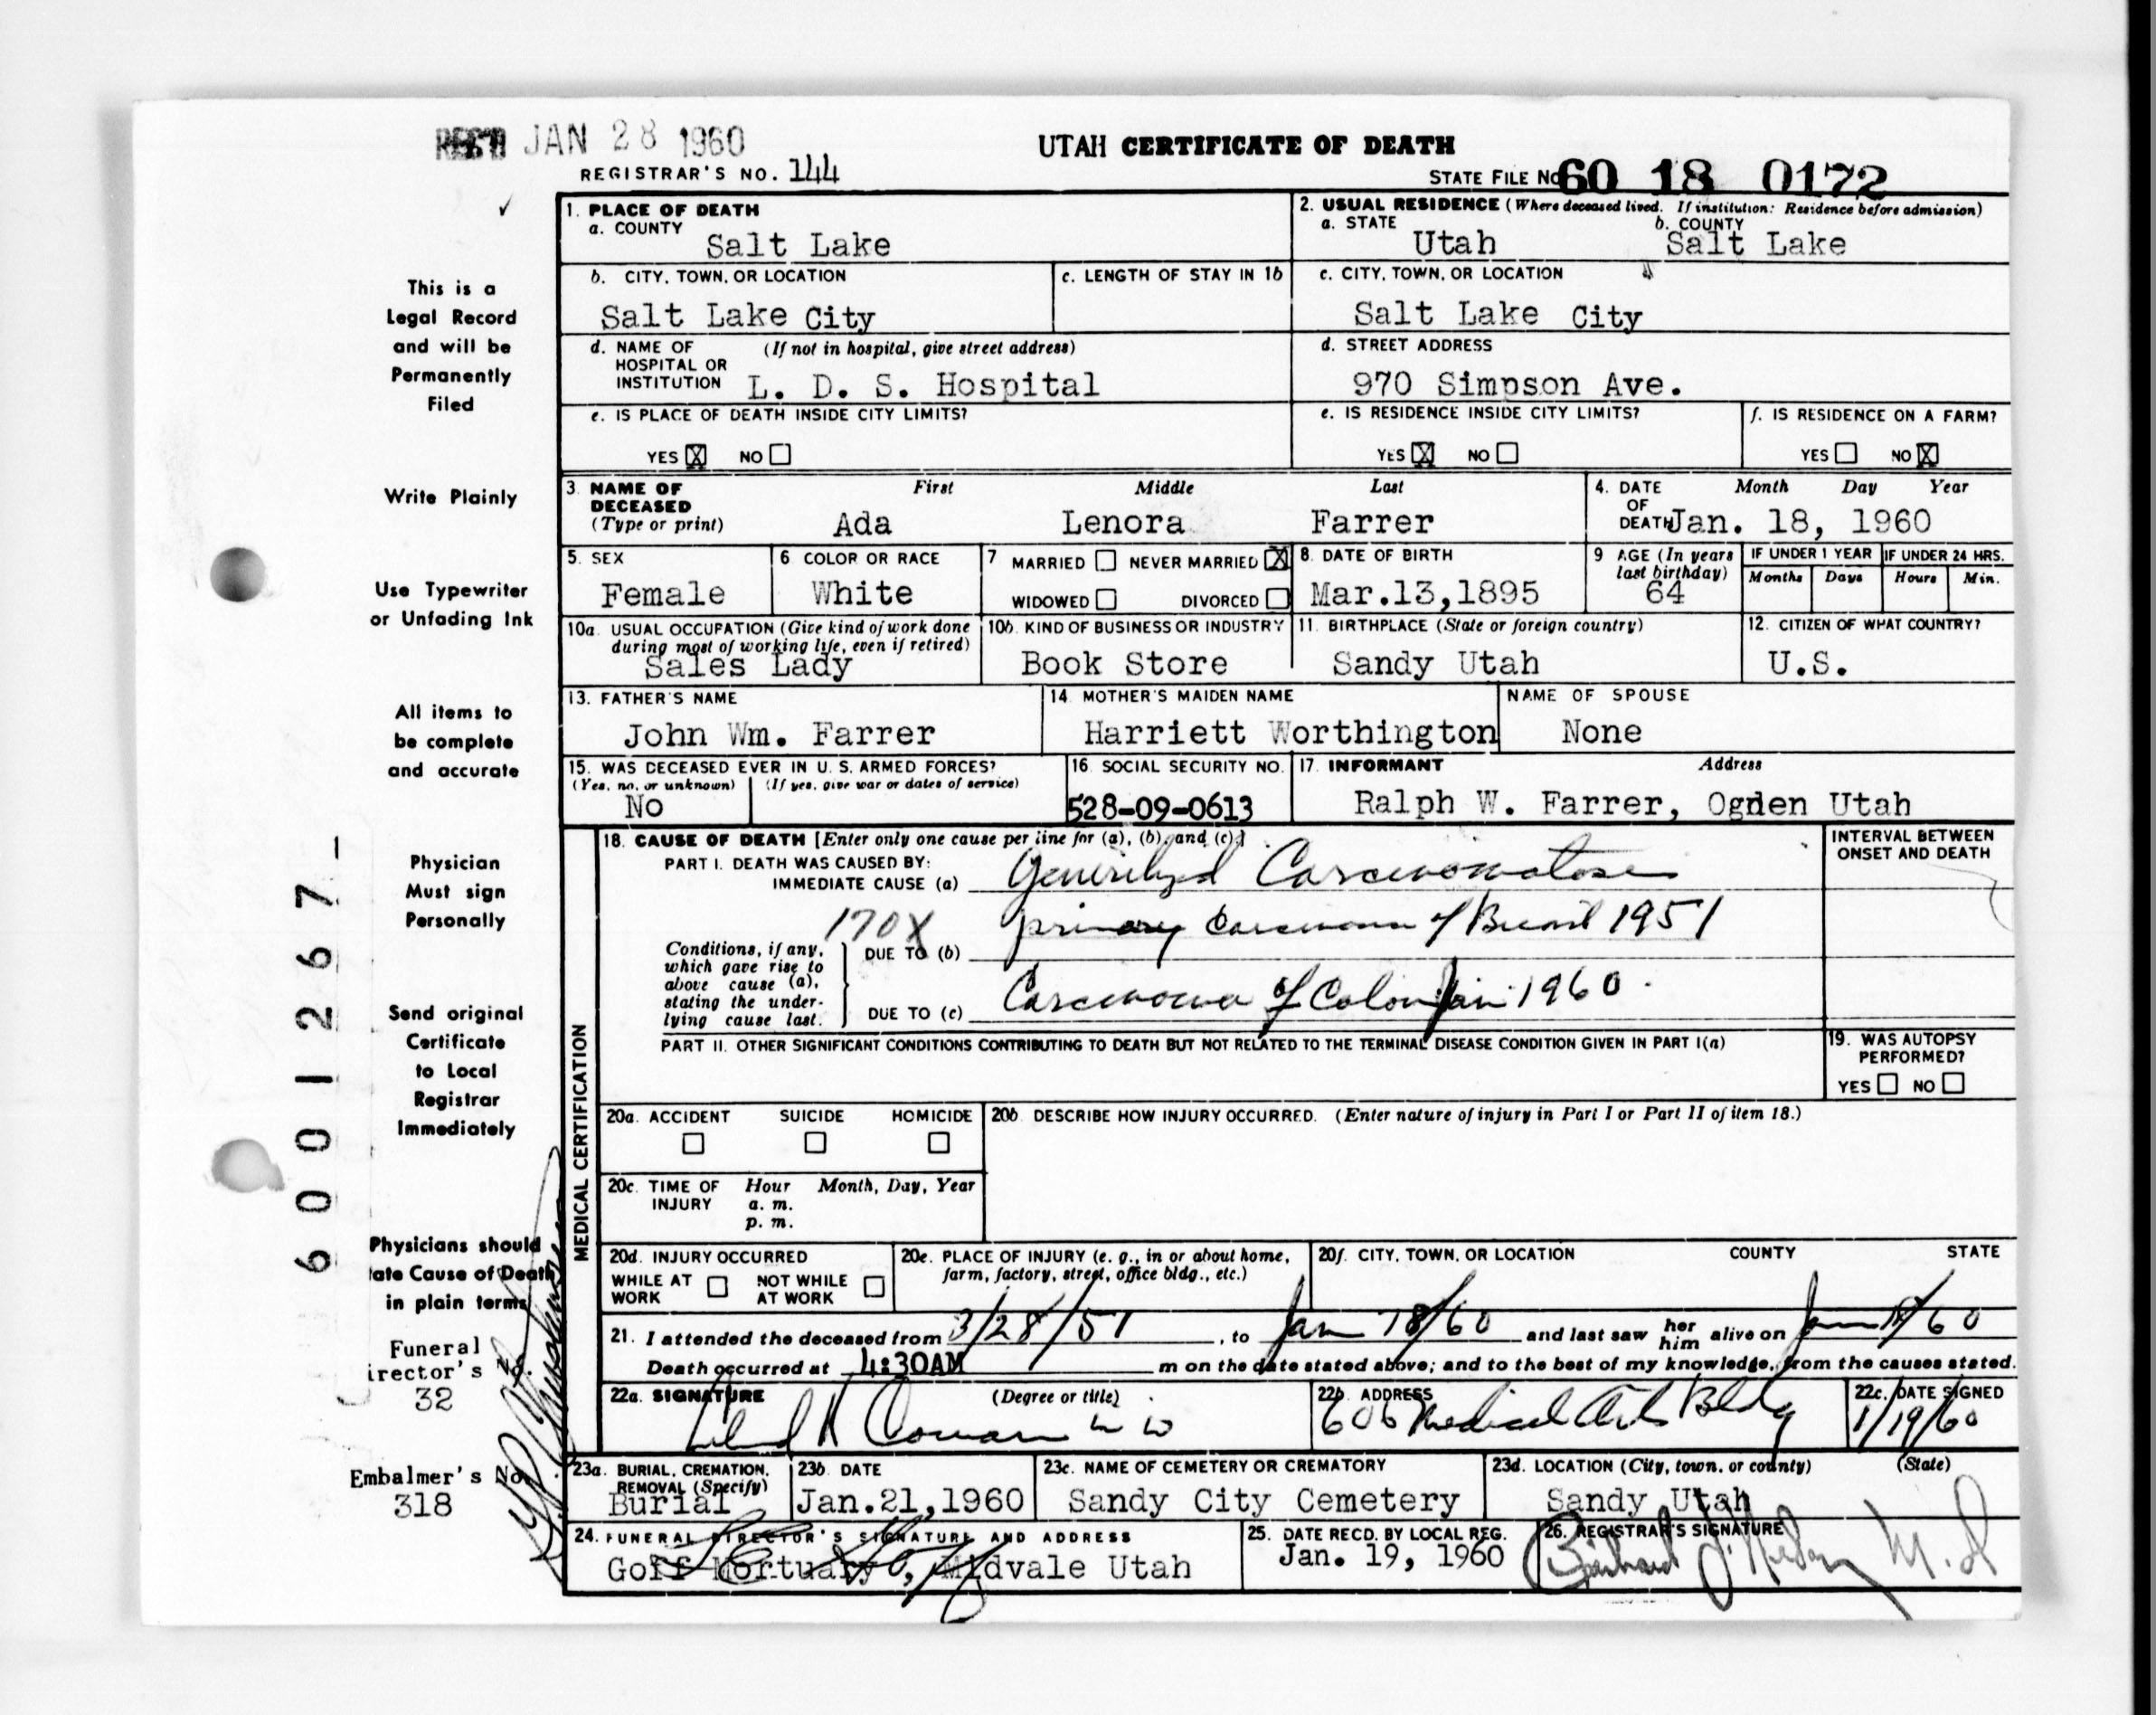 REC'D JAN 28 1960
UTAH CERTIFICATE OF DEATH
REGISTRAR'S NO. 144
STATE FILE NO. 60 18 0172
This is a
Legal Record
and will be
Permanently
Filed
Write Plainly
Use Typewriter
or Unfading Ink
All items to
be complete
and accurate
Physician
Must sign
Personally
Send original
Certificate
to Local
Registrar
Immediately
Physicians should
ate Cause of Death
in plain terms
Funeral
irector's No.
32
Embalmer's No.
318
6001267-
1. PLACE OF DEATH
a. COUNTY
Salt Lake
2. USUAL RESIDENCE (Where deceased lived. If institution: Residence before admission)
a. STATE
Utah
b. COUNTY
Salt Lake
b. CITY, TOWN, OR LOCATION
Salt Lake City
c. LENGTH OF STAY IN 1b
c. CITY, TOWN, OR LOCATION
Salt Lake City
d. NAME OF (If not in hospital, give street address)
HOSPITAL OR
INSTITUTION L. D. S. Hospital
d. STREET ADDRESS
970 Simpson Ave.
e. IS PLACE OF DEATH INSIDE CITY LIMITS?
YES X NO
e. IS RESIDENCE INSIDE CITY LIMITS?
YES X NO
f. IS RESIDENCE ON A FARM?
YES NO X
3. NAME OF First Middle Last
DECEASED
(Type or print) Ada Lenora Farrer
4. DATE Month Day Year
OF
DEATH Jan. 18, 1960
5. SEX
Female
6 COLOR OR RACE
White
7 MARRIED NEVER MARRIED X
WIDOWED DIVORCED
8. DATE OF BIRTH
Mar.13,1895
9 AGE (In years
last birthday)
64
IF UNDER 1 YEAR
Months Days
IF UNDER 24 HRS.
Hours Min.
10a. USUAL OCCUPATION (Give kind of work done
during most of working life, even if retired)
Sales Lady
10b. KIND OF BUSINESS OR INDUSTRY
Book Store
11. BIRTHPLACE (State or foreign country)
Sandy Utah
12. CITIZEN OF WHAT COUNTRY?
U.S.
13. FATHER'S NAME
John Wm. Farrer
14 MOTHER'S MAIDEN NAME
Harriett Worthington
NAME OF SPOUSE
None
15. WAS DECEASED EVER IN U. S. ARMED FORCES?
(Yes, no, or unknown) (If yes, give war or dates of service)
No
16. SOCIAL SECURITY NO.
528-09-0613
17. INFORMANT Address
Ralph W. Farrer, Ogden Utah
MEDICAL CERTIFICATION
18. CAUSE OF DEATH [Enter only one cause per line for (a), (b), and (c).]
PART I. DEATH WAS CAUSED BY:
IMMEDIATE CAUSE (a) Generalized Carcinomatosis
INTERVAL BETWEEN
ONSET AND DEATH
170X
Conditions, if any,
which gave rise to
above cause (a),
stating the under-
lying cause last.
DUE TO (b) primary Carcinoma of Breast 1951
DUE TO (c) Carcinoma of Colon Jan 1960.
PART II. OTHER SIGNIFICANT CONDITIONS CONTRIBUTING TO DEATH BUT NOT RELATED TO THE TERMINAL DISEASE CONDITION GIVEN IN PART I(a)
19. WAS AUTOPSY
PERFORMED?
YES NO
20a. ACCIDENT SUICIDE HOMICIDE
20b. DESCRIBE HOW INJURY OCCURRED. (Enter nature of injury in Part I or Part II of item 18.)
20c. TIME OF Hour Month, Day, Year
INJURY a. m.
p. m.
20d. INJURY OCCURRED
WHILE AT NOT WHILE
WORK AT WORK
20e. PLACE OF INJURY (e. g., in or about home,
farm, factory, street, office bldg., etc.)
20f. CITY, TOWN, OR LOCATION COUNTY STATE
21. I attended the deceased from 3/28/51, to Jan 18/60 and last saw her him alive on Jan 18/60
Death occurred at 4:30AM m on the date stated above; and to the best of my knowledge, from the causes stated.
22a. SIGNATURE (Degree or title)
Leland R Cowan M D
22b. ADDRESS
606 Medical Arts Bldg
22c. DATE SIGNED
1/19/60
23a. BURIAL, CREMATION,
REMOVAL (Specify)
Burial
23b. DATE
Jan.21,1960
23c. NAME OF CEMETERY OR CREMATORY
Sandy City Cemetery
23d. LOCATION (City, town, or county) (State)
Sandy Utah
24. FUNERAL DIRECTOR'S SIGNATURE AND ADDRESS
Goff Mortuary, Midvale Utah
25. DATE RECD. BY LOCAL REG.
Jan. 19, 1960
26. REGISTRAR'S SIGNATURE
M.D